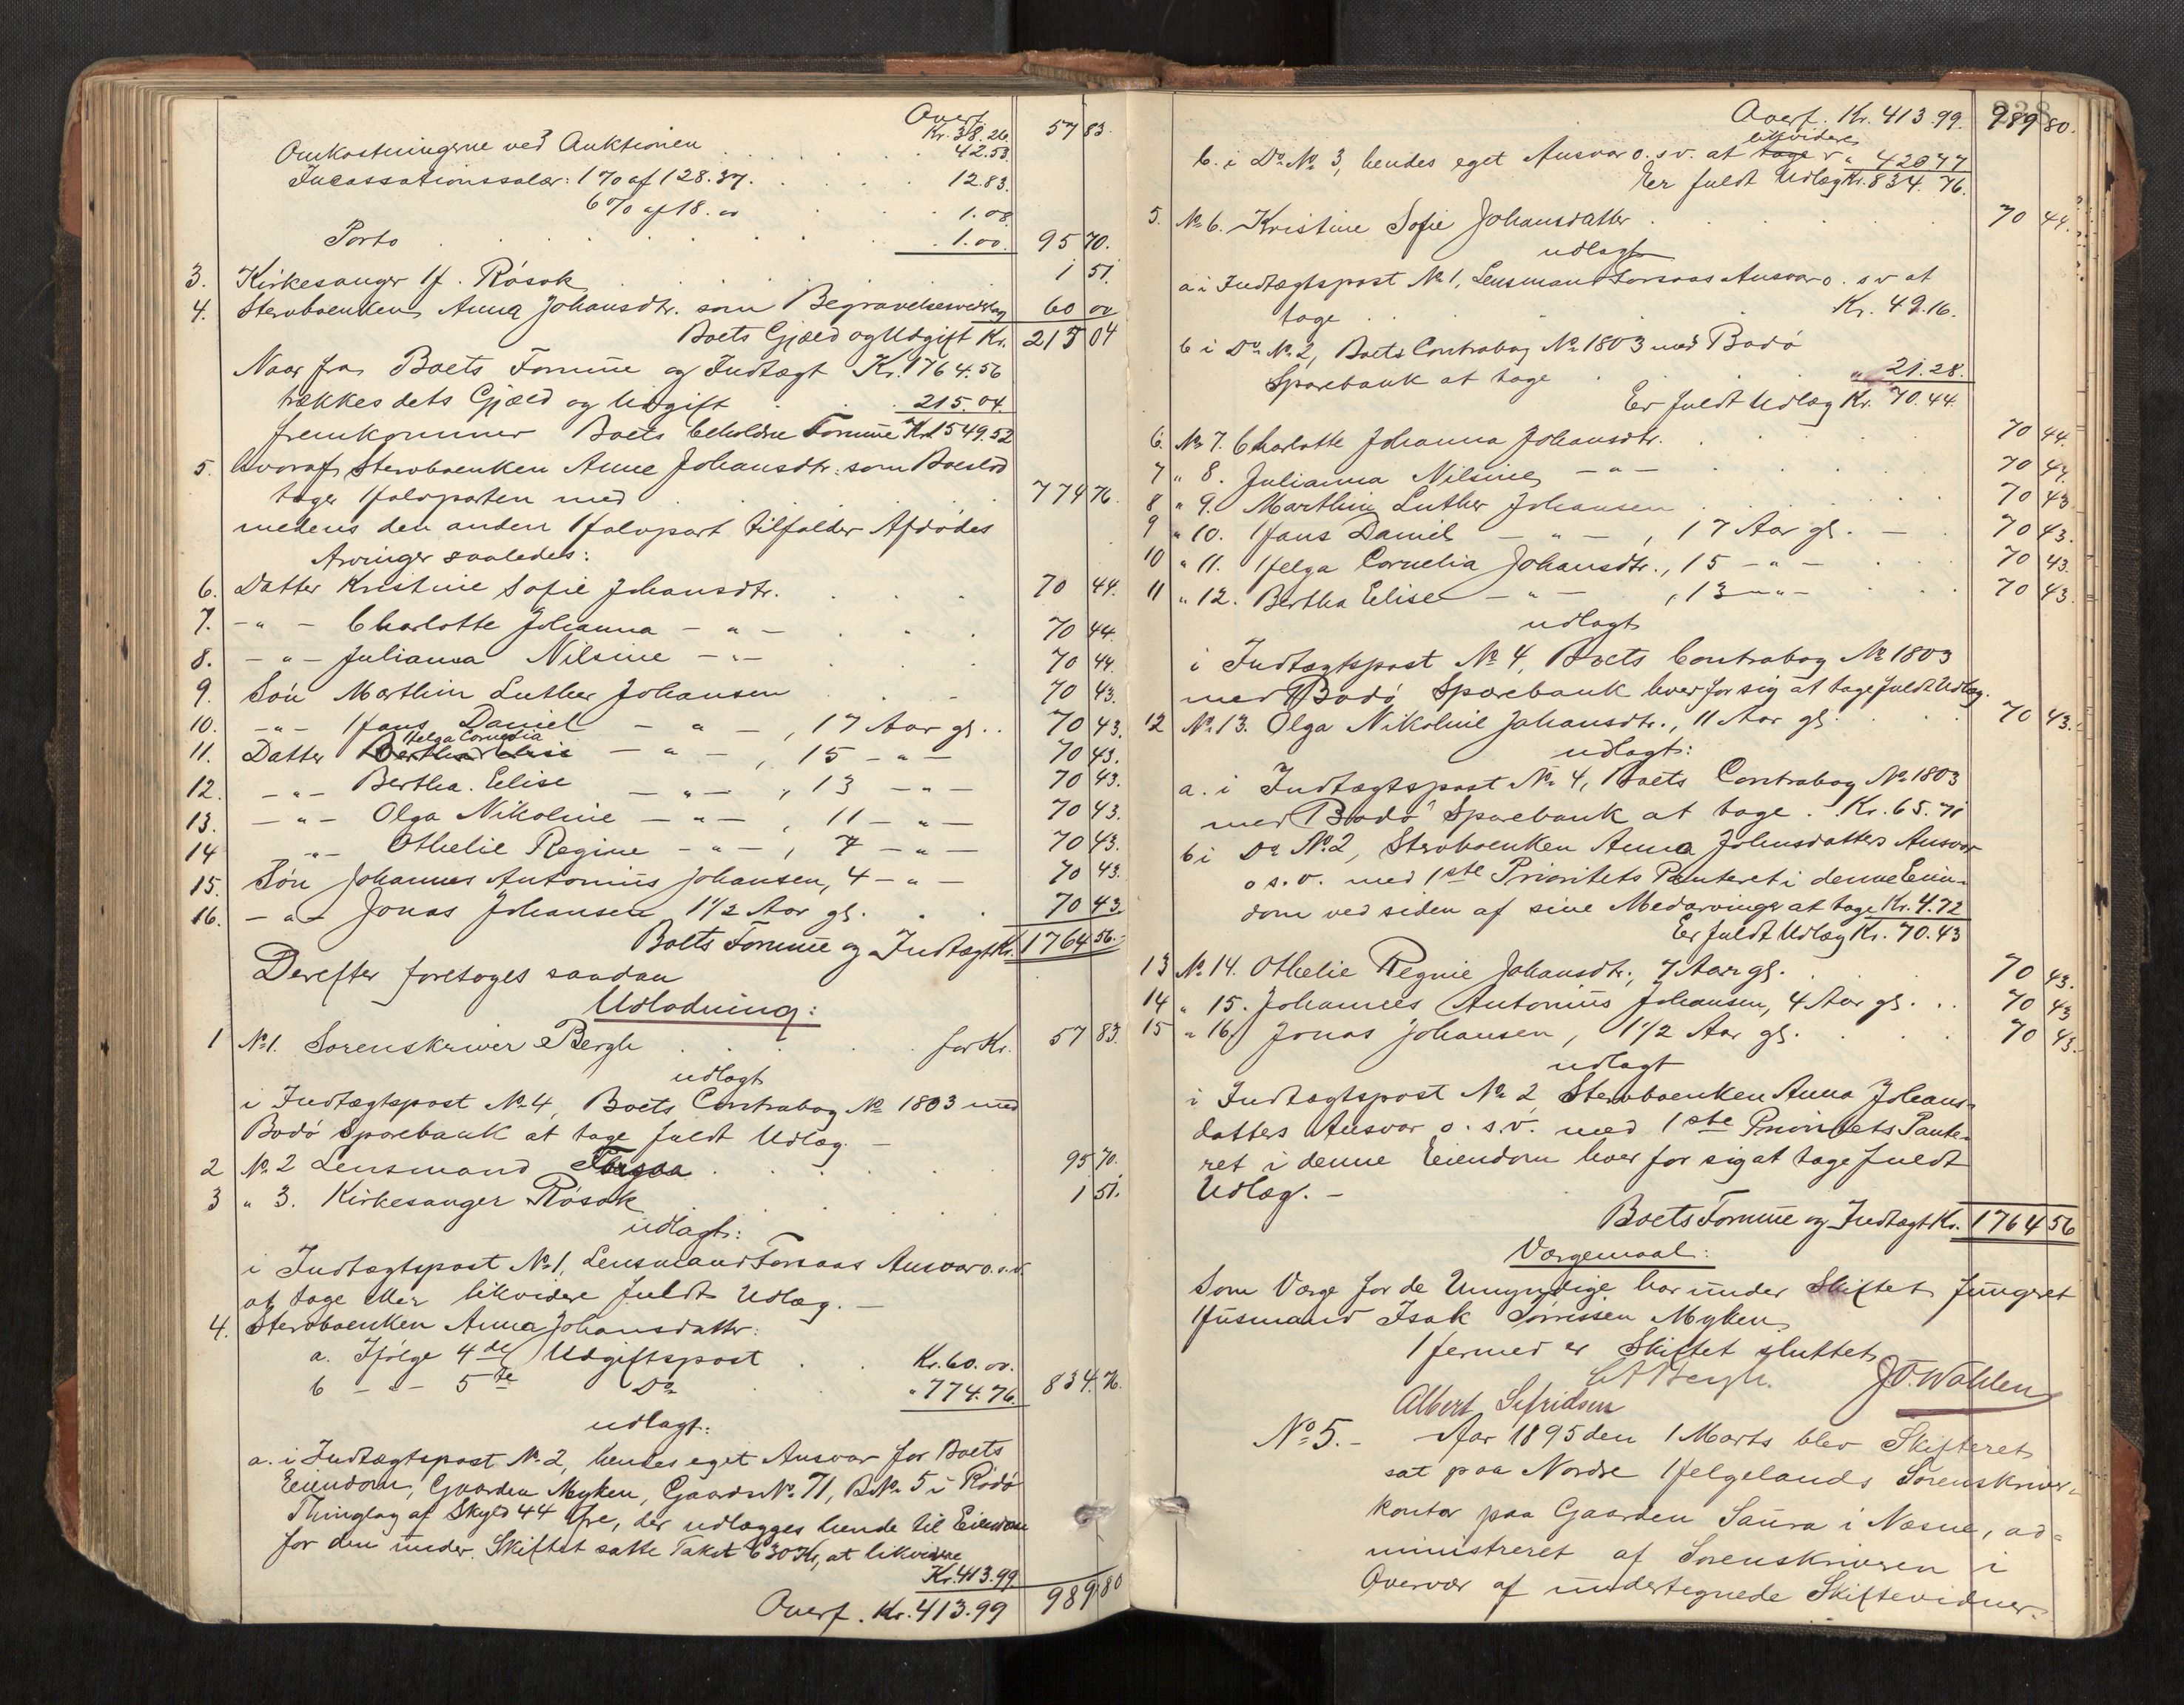 Overf.
Kr. 38.26 57 83.
Omkostningerne ved Auktionen . . . . . . 42.53.
Incassationssalær: 1 % af 128.37. . . . . 12.83.
6 % af 18.00 . . . 1.08
Porto . . . . . . . . 1.00. 95 70.
3. Kirkesanger H. Rösok . . . . 1 51
4. Stervboenken Anna Johansdtr. som Begravelses 60 00
Boets Gjæld og Udgift Kr. 215 04
Naar fra Boets Formue og Indtægt Kr. 1764.56
trækkes dets Gjæld og Udgift . . 215.04.
fremkommer Boets beholdne Formue Kr. 1549.52
5. hvoraf Stervboenken Anne Johansdtr. som Boeslod
tager Halvparten med . . . . . 774 76.
medens den anden Halvpart tilfalder Afdødes
Arvinger saaledes:
6. Datter Kristine Sofie Johansdtr. . . . 70 44.
7. -"- Charlotte Johanna -"- . . . 70 44.
8. -"- Julianna Nilsine -"- . . . 70 44.
9. Sön Marthin Luther Johansen . . - 70 43.
10. -"- Hans Daniel -"-, 17 Aar gl. . 70 43.
Helga Cornelia
11. Datter Bertha Elise -"-, 15 -"- 70 43.
12. -"- Bertha Elise -"-, 13 -"- 70 43.
13. -"- Olga Nikoline -"-, 11 -"- 70 43.
14 -"- Othelie Regine -"-, 7 -"- 70 43.
15. Sön Johannes Antonius Johansen, 4 -"- 70 43.
16. -"- Jonas Johansen 1 1/2 Aar gl. . . 70 43
Boets Formue og Indtægt Kr. 1764 56.
Derefter foretoges saadan
Udlodning:
1 No 1. Sorenskriver Bergh . . . . for Kr. 57 83.
udlagt
i Indtægtspost No 4, Boets Contrabog No 1803 med
Bodö Sparebank at tage fuldt Udlæg. -
2 No 2 Lensmand Forsaa . . . . . 95 70.
3 " 3. Kirkesanger Rösok . . . . . 1 51.
udlagt:
i Indtægtspost No 1, Lensmand Forsaas Ansvar o.s.v.
at tage eller likvidere fuldt Udlæg. -
4. Stervboenken Anna Johansdatter:
a. Ifölge 4de Udgiftspost . . Kr. 60.00.
b -"- 5te Do . . " 774.76. 834.76.
udlagt:
a. i Indtægtspost No 2, hendes eget Ansvar for Boets
Eiendom, Gaarden Myken, Gaards No. 71, B.No. 5 i Rödö
Thinglag af Skyld 44 Öre, der udlægges hende til Eiendom
for den under Skiftet satte Takst 630 Kr, at likvidere
Kr. 413.99
Overf. Kr. 413.99 989 80
238
Overf. Kr. 413.99. 989 80.
likvidere
b. i Do No 3, hendes eget Ansvar o.s.v. at tage " 420 77
Er fuldt Udlæg Kr. 834. 76.
5. No 6. Kristine Sofie Johansdatter . . . . 70 44.
udlagt
a i Indtægtspost No 1, Lensmand Forsaas Ansvar o. s v at
tage . . . . Kr. 49.16.
b i Do No 2, Boets Contrabog No 1803 med Bodö
Sparebank at tage . . " 21.28.
Er fuldt Udlæg Kr. 70.44.
6. No 7. Charlotte Johanna Johansdtr. . . . . 70 44.
7 " 8. Julianna Nilsine -"- . . . . 70 44.
8 " 9. Marthin Luther Johansen . . . . 70 43
9 " 10. Hans Daniel -"-, 17 Aar gl. - . 70 43.
10 " 11. Helga Cornelia Johansdtr., 15 -"- . . 70 43.
11 " 12. Bertha Elise -"-, 13 -"- . . 70 43.
udlagt
i Indtægtspost No 4, Boets Contrabog No 1803
med Bodö Sparebank hver for sig at tage fuldt Udlæg.
12 No 13. Olga Nikoline Johansdtr., 11 Aar gl. . . . 70 43.
udlagt:
a. i Indtægtspost No 4, Boets Contrabog No 1803
med Bodö Sparebank at tage . Kr. 65.71
b i Do No 2, Stervboenken Anna Johansdatters Ansvar
o s. v. med 1ste Prioritets Panteret i denne Eien-
dom ved siden af sine Medarvinger at tage Kr. 4.72
Er fuldt Udlæg Kr. 70.43
13 No 14. Othelie Regine Johansdtr., 7 Aar gl. . . . 70 43.
14 " 15. Johannes Antonius Johansen, 4 Aar gl. . . 70 43
15 " 16. Jonas Johansen, 1 1/2 Aar gl. . . . 70 43.
udlagt
i Indtægtspost No 2 Stervboenken Anna Johans-
datters Ansvar o. s. v. med 1ste Prioritets Pante-
ret i denne Eiendom hver for sig at tage fuldt
Udlæg. -
Boets Formue og Indtægt Kr. 1764 56
Værgemaal:
Som Værge for de Umyndige har under Skiftet fungeret
Husmand Isak Törrissen Myken.
Hermed er Skiftet sluttet
Bergh. J O. Wahlen
Albert Sefridsen
No 5. - Aar 1895 den 1 Marts blev Skifteret
sat paa Nordre Helgelands Sorenskriver-
kontor paa Gaarden Saura i Næsne, ad-
ministreret af Sorenskriveren i
Overvær af undertegnede Skiftevidner.